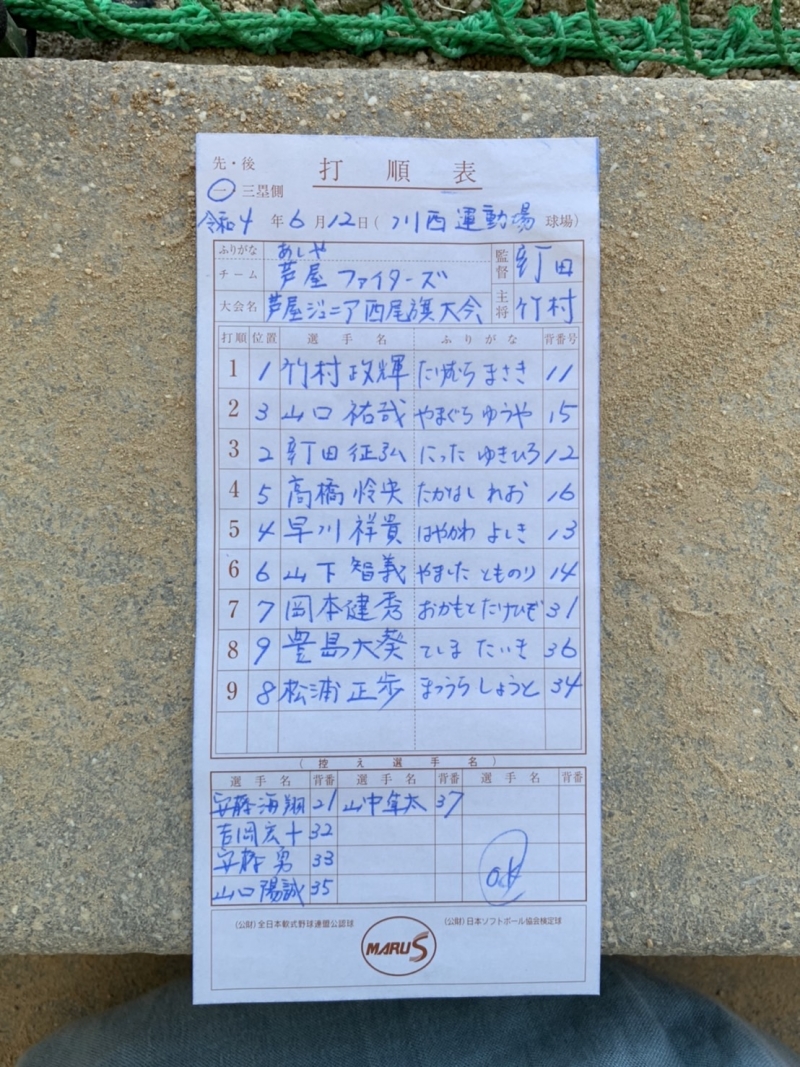 先・後 打順表
一 三塁側
令和4年6月12日(川西運動場球場)
ふりがな あしや
チーム 芦屋ファイターズ 監督 新田
大会名 芦屋ジュニア西尾旗大会 主将 竹村
打順 位置 選手名 ふりがな 背番号
1 1 竹村政輝 たけむら まさき 11
2 3 山口祐哉 やまぐち ゆうや 15
3 2 新田征弘 にった ゆきひろ 12
4 5 高橋怜央 たかはし れお 16
5 4 早川祥貴 はやかわ よしき 13
6 6 山下智義 やました とものり 14
7 7 岡本健秀 おかもと たけひで 31
8 9 豊島大葵 てしま たいき 36
9 8 松浦正歩 まつうら しょうと 34
(控え選手名)
選手名 背番 選手名 背番 選手名 背番
安藤海翔 21 山中 太 37
吉岡宏十 32
安藤勇 33
山口陽誠 35
(公財)全日本軟式野球連盟公認球 (公財)日本ソフトボール協会検定球
MARU S